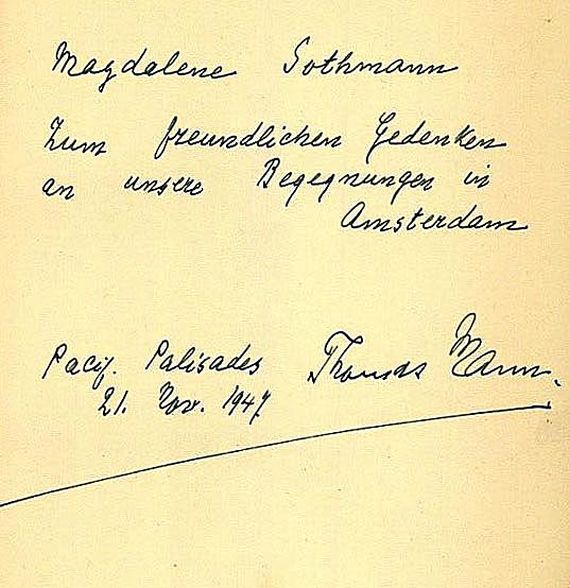 Magdalene Sothmann
Zum freundlichen Gedenken
an unsere Begegnungen in
Amsterdam
Pacif. Palisades
21. Nov. 1947
Thomas Mann.